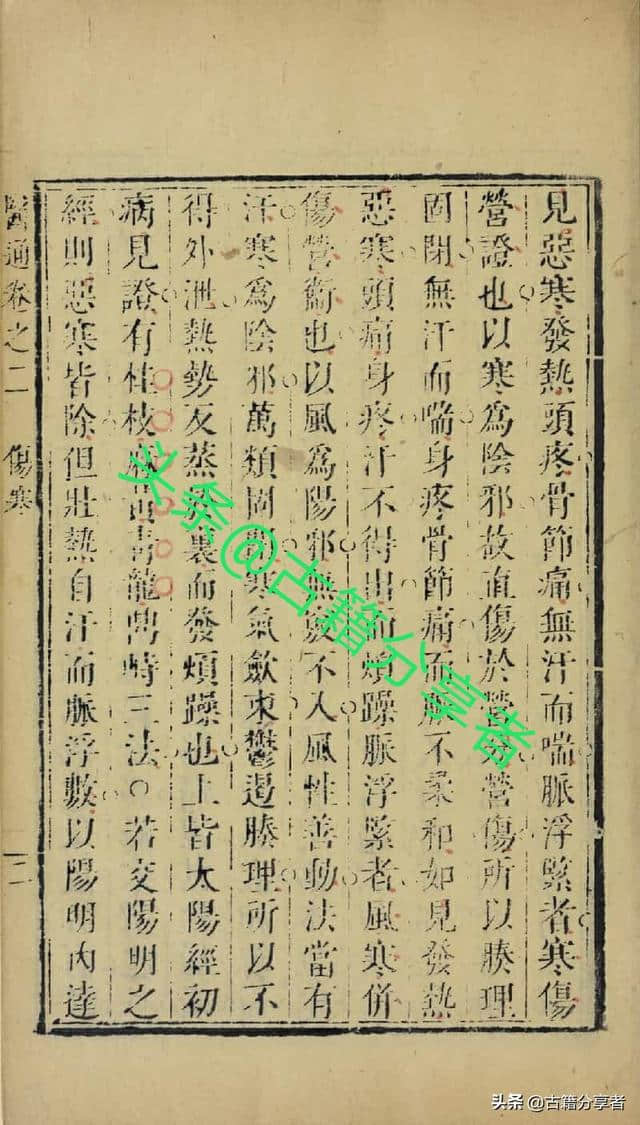 見惡寒發熱頭疼骨節痛無汗而喘脈浮緊者寒傷
營證也以寒爲陰邪故直傷於營營傷所以腠理
固閉無汗而喘身疼骨節痛而脈不柔和如見發熱
惡寒頭痛身疼汗不得出而煩躁脈浮緊者風寒併
傷營衛也以風爲陽邪無竅不入風性善動法當有
汗寒爲陰邪萬類固閉寒氣斂束鬱遏腠理所以不
得外泄熱勢反蒸於裏而發煩躁也上皆太陽經初
病見證有桂枝麻黃青龍鼎峙三法○若交陽明之
經則惡寒皆除但壯熱自汗而脈浮數以陽明內達
醫通卷之二 傷寒 三
头条@古籍分享者
头条 @古籍分享者